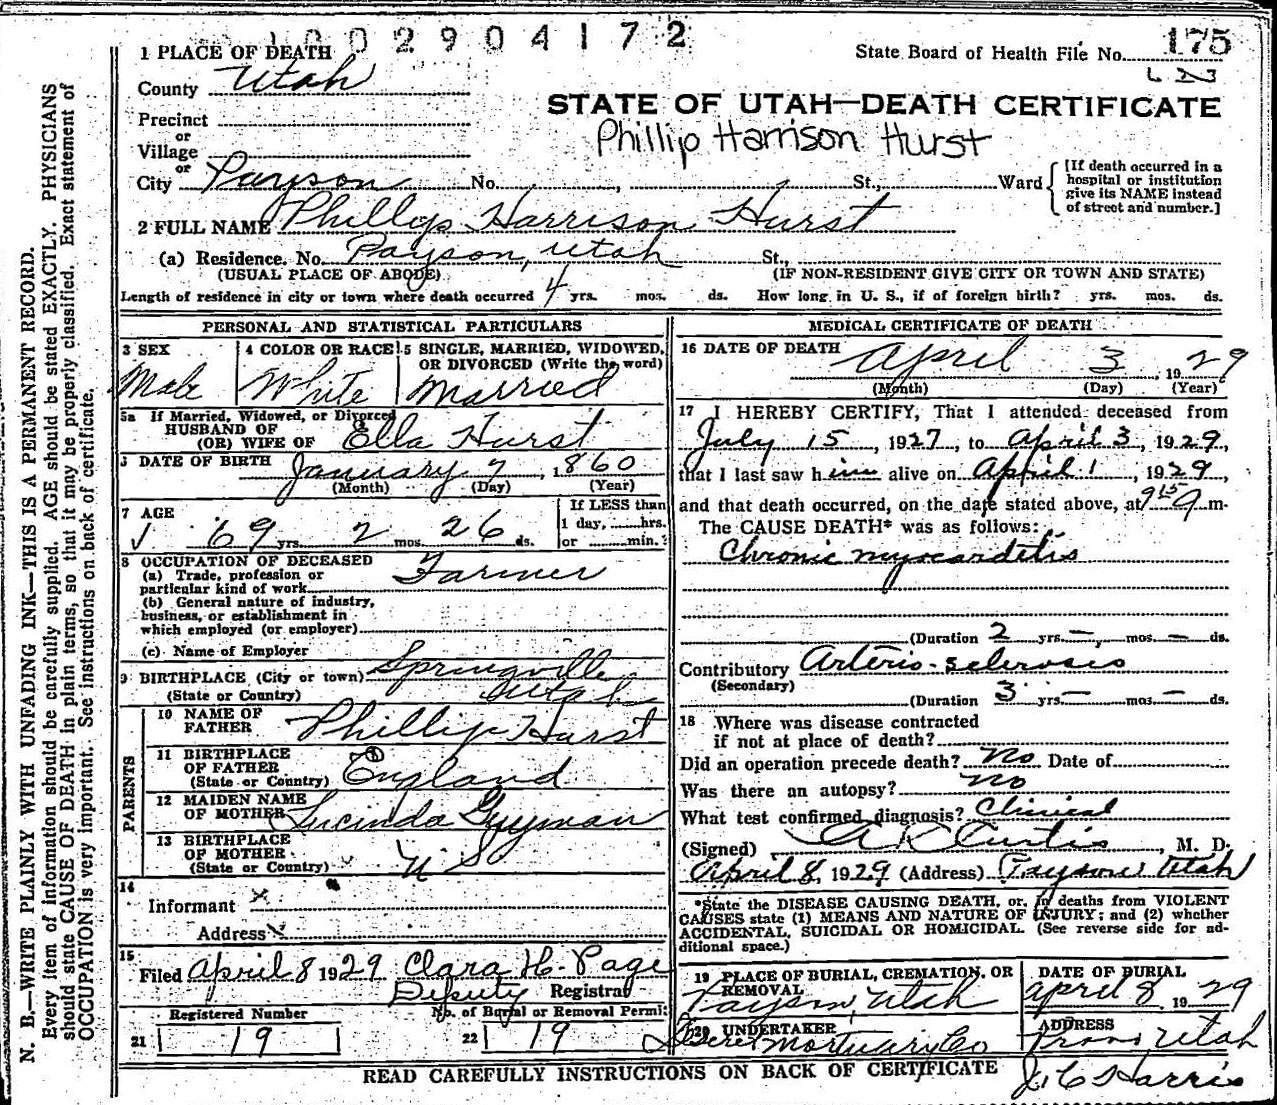 002904172
1 PLACE OF DEATH
State Board of Health File No. 175
County Utah
STATE OF UTAH—DEATH CERTIFICATE
Precinct
Phillip Harrison Hurst
or
Village
or
City Payson No. , St., Ward
[If death occurred in a hospital or institution give its NAME instead of street and number.]
2 FULL NAME Phillip Harrison Hurst
(a) Residence. No. Payson, Utah St.,
(USUAL PLACE OF ABODE) (IF NON-RESIDENT GIVE CITY OR TOWN AND STATE)
Length of residence in city or town where death occurred 4 yrs. mos. ds. How long in U. S., if of foreign birth? yrs. mos. ds.
PERSONAL AND STATISTICAL PARTICULARS
3 SEX 4 COLOR OR RACE 5 SINGLE, MARRIED, WIDOWED,
OR DIVORCED (Write the word)
Male White Married
5a If Married, Widowed, or Divorced
HUSBAND OF
(OR) WIFE OF Ella Hurst
6 DATE OF BIRTH January 7, 1860
(Month) (Day) (Year)
7 AGE If LESS than
1 day, hrs.
69 yrs. 2 mos. 26 ds. or min.?
8 OCCUPATION OF DECEASED
(a) Trade, profession or
particular kind of work Farmer
(b) General nature of industry,
business, or establishment in
which employed (or employer)
(c) Name of Employer
9 BIRTHPLACE (City or town) Springville
(State or Country) Utah
PARENTS
10 NAME OF
FATHER Phillip Hurst
11 BIRTHPLACE
OF FATHER
(State or Country) England
12 MAIDEN NAME
OF MOTHER Lucinda Guyman
13 BIRTHPLACE
OF MOTHER
(State or Country) U S
14
Informant x
Address x
15
Filed April 8 1929 Clara H. Page
Deputy Registrar
Registered Number No. of Burial or Removal Permit
21 19 22 19
MEDICAL CERTIFICATE OF DEATH
16 DATE OF DEATH April 3, 1929
(Month) (Day) (Year)
17 I HEREBY CERTIFY, That I attended deceased from
July 15, 1927, to April 3, 1929,
that I last saw him alive on April 1, 1929,
and that death occurred, on the date stated above, at 9 15 a m.
The CAUSE DEATH* was as follows:
Chronic myocarditis
(Duration 2 yrs. – mos. – ds.
Contributory Arterio-sclerosis
(Secondary)
(Duration 3 yrs. – mos. – ds.
18 Where was disease contracted
if not at place of death?
Did an operation precede death? No Date of
Was there an autopsy? No
What test confirmed diagnosis? Clinical
(Signed) A K Curtis, M. D.
April 8, 1929 (Address) Payson Utah
*State the DISEASE CAUSING DEATH, or, in deaths from VIOLENT
CAUSES state (1) MEANS AND NATURE OF INJURY; and (2) whether
ACCIDENTAL, SUICIDAL OR HOMICIDAL. (See reverse side for ad-
ditional space.)
19 PLACE OF BURIAL, CREMATION, OR DATE OF BURIAL
REMOVAL
Payson, Utah April 8 1929
20 UNDERTAKER ADDRESS
Mortuary Co Provo, Utah
READ CAREFULLY INSTRUCTIONS ON BACK OF CERTIFICATE
Harris
N. B.—WRITE PLAINLY WITH UNFADING INK—THIS IS A PERMANENT RECORD.
Every item of information should be carefully supplied. AGE should be stated EXACTLY. PHYSICIANS
should state CAUSE OF DEATH in plain terms, so that it may be properly classified. Exact statement of
OCCUPATION is very important. See instructions on back of certificate.